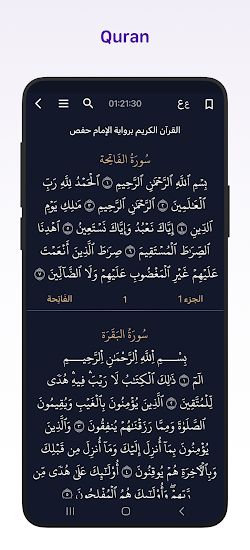 Quran
01:21:30
ع ع
القرآن الكريم برواية الإمام حفص
سُورَةُ الفَاتِحَة
بِسْمِ ٱللَّهِ ٱلرَّحْمَٰنِ ٱلرَّحِيمِ ١ ٱلْحَمْدُ لِلَّهِ رَبِّ
ٱلْعَٰلَمِينَ ٢ ٱلرَّحْمَٰنِ ٱلرَّحِيمِ ٣ مَٰلِكِ يَوْمِ
ٱلدِّينِ ٤ إِيَّاكَ نَعْبُدُ وَإِيَّاكَ نَسْتَعِينُ ٥ ٱهْدِنَا
ٱلصِّرَٰطَ ٱلْمُسْتَقِيمَ ٦ صِرَٰطَ ٱلَّذِينَ أَنْعَمْتَ
عَلَيْهِمْ غَيْرِ ٱلْمَغْضُوبِ عَلَيْهِمْ وَلَا ٱلضَّآلِّينَ ٧
الجزء 1 1 الفَاتِحة
سُورَةُ البَقَرَة
بِسْمِ ٱللَّهِ ٱلرَّحْمَٰنِ ٱلرَّحِيمِ
الٓمٓ ١ ذَٰلِكَ ٱلْكِتَٰبُ لَا رَيْبَ ۛ فِيهِ ۛ هُدًى
لِّلْمُتَّقِينَ ٢ ٱلَّذِينَ يُؤْمِنُونَ بِٱلْغَيْبِ وَيُقِيمُونَ
ٱلصَّلَوٰةَ وَمِمَّا رَزَقْنَٰهُمْ يُنفِقُونَ ٣ وَٱلَّذِينَ
يُؤْمِنُونَ بِمَآ أُنزِلَ إِلَيْكَ وَمَآ أُنزِلَ مِن قَبْلِكَ
وَبِٱلْءَاخِرَةِ هُمْ يُوقِنُونَ ٤ أُو۟لَٰٓئِكَ عَلَىٰ هُدًى مِّن
رَّبِّهِمْ ۖ وَأُو۟لَٰٓئِكَ هُمُ ٱلْمُفْلِحُونَ ٥